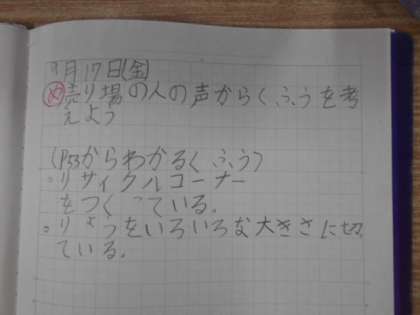 9月17日(金)
め 売り場の人の声からくふうを考
えよう
(P53からわかるくふう)
・リサイクルコーナー
をつくっている。
・をいろいろな大きさに切
ている。